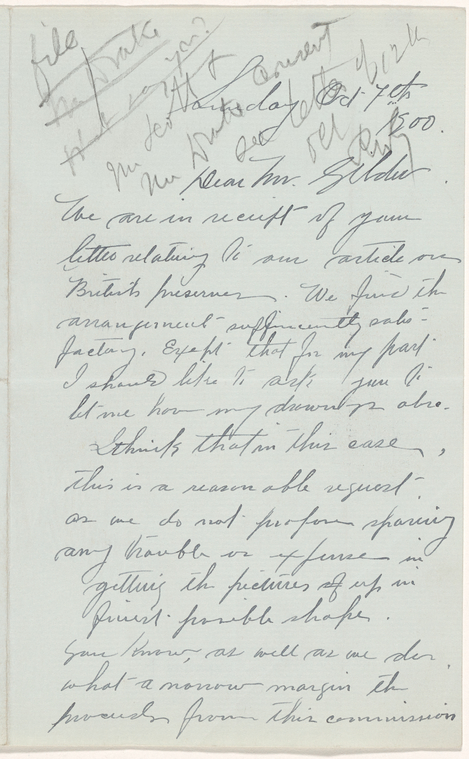 file
Mr Drake
What say you?
Mr Scott
Mr Drake consent
see letter
Oct 12th
Thursday Oct 7th
1800.
Dear Mr. Gilder.
We are in receipt of your
letter relating to our article on
British preserves. We find the
arrangement sufficiently satis-
factory. Except that for my part
I should like to ask you to
let me have my drawings also.
I think that in this case,
this is a reasonable request.
as we do not propose sparing
any trouble or expense in
getting the pictures up in
finest possible shape.
You know, as well as we do,
what a narrow margin the
proceeds from this commission